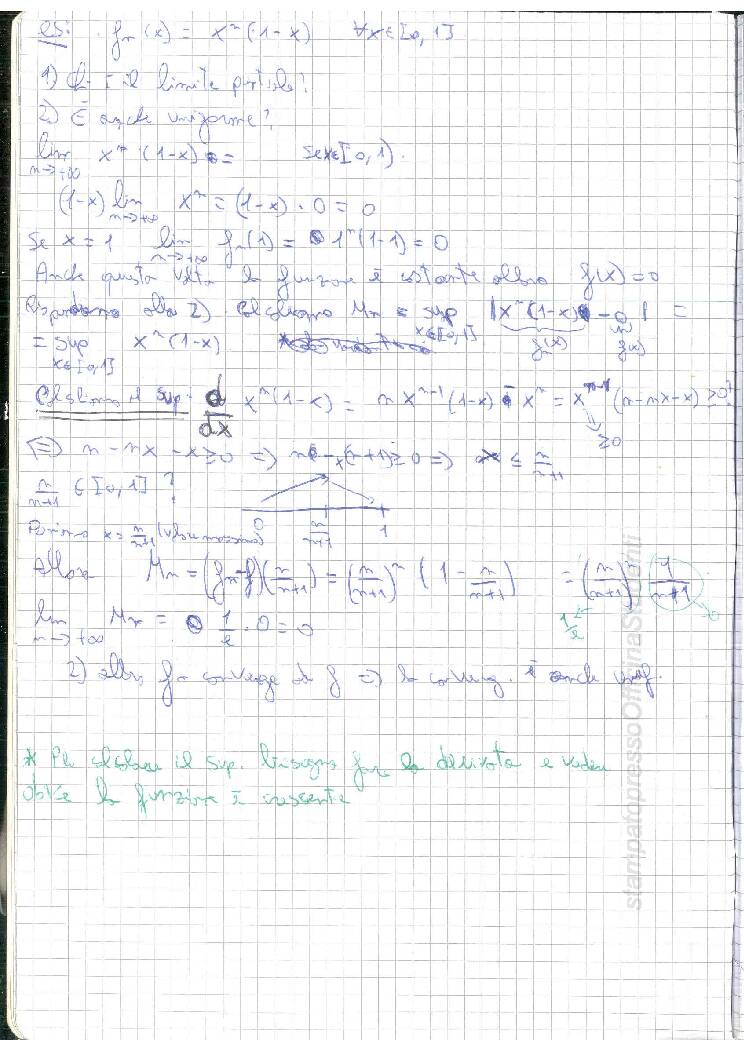 es: fn(x) = x^n(1-x) ∀x∈[0,1]
1) Ch è il limite puntuale?
2) È anche uniforme?
lim n→+∞ x^n (1-x) = se x∈[0,1).
(1-x) lim n→+∞ x^n = (1-x)·0 = 0
Se x=1 lim n→+∞ fn(1) = 1^n(1-1) = 0
Anche questa volta la funzione è costante allora f(x)=0
Rispondiamo alla 2) Calcoliamo Mn = sup x∈[0,1] |x^n(1-x) - 0| =
fn(x) f(x)
= sup x∈[0,1] x^n(1-x)
Calcoliamo il sup. d/dx x^n(1-x) = n x^{n-1}(1-x) - x^n = x^{n-1}(n-nx-x) ≥0*
≥0
⇒ n-nx-x≥0 ⇒ n-x(n+1)≥0 ⇒ x ≤ n/(n+1)
n/(n+1) ∈[0,1] ?
0 n/(n+1) 1
x = n/(n+1) (valore massimo)
allora Mn = (fn-f)(n/(n+1)) = (n/(n+1))^n (1 - n/(n+1)) = (n/(n+1))^n 1/(n+1)
1/e 0
lim n→+∞ Mn = 1/e · 0 = 0
2) allora fn converge ad f ⇒ la converg. è anche unif.
* Per calcolare il sup. bisogna fare la derivata e vedere
dove la funzione è crescente
stampatopressoOfficinaStudenti